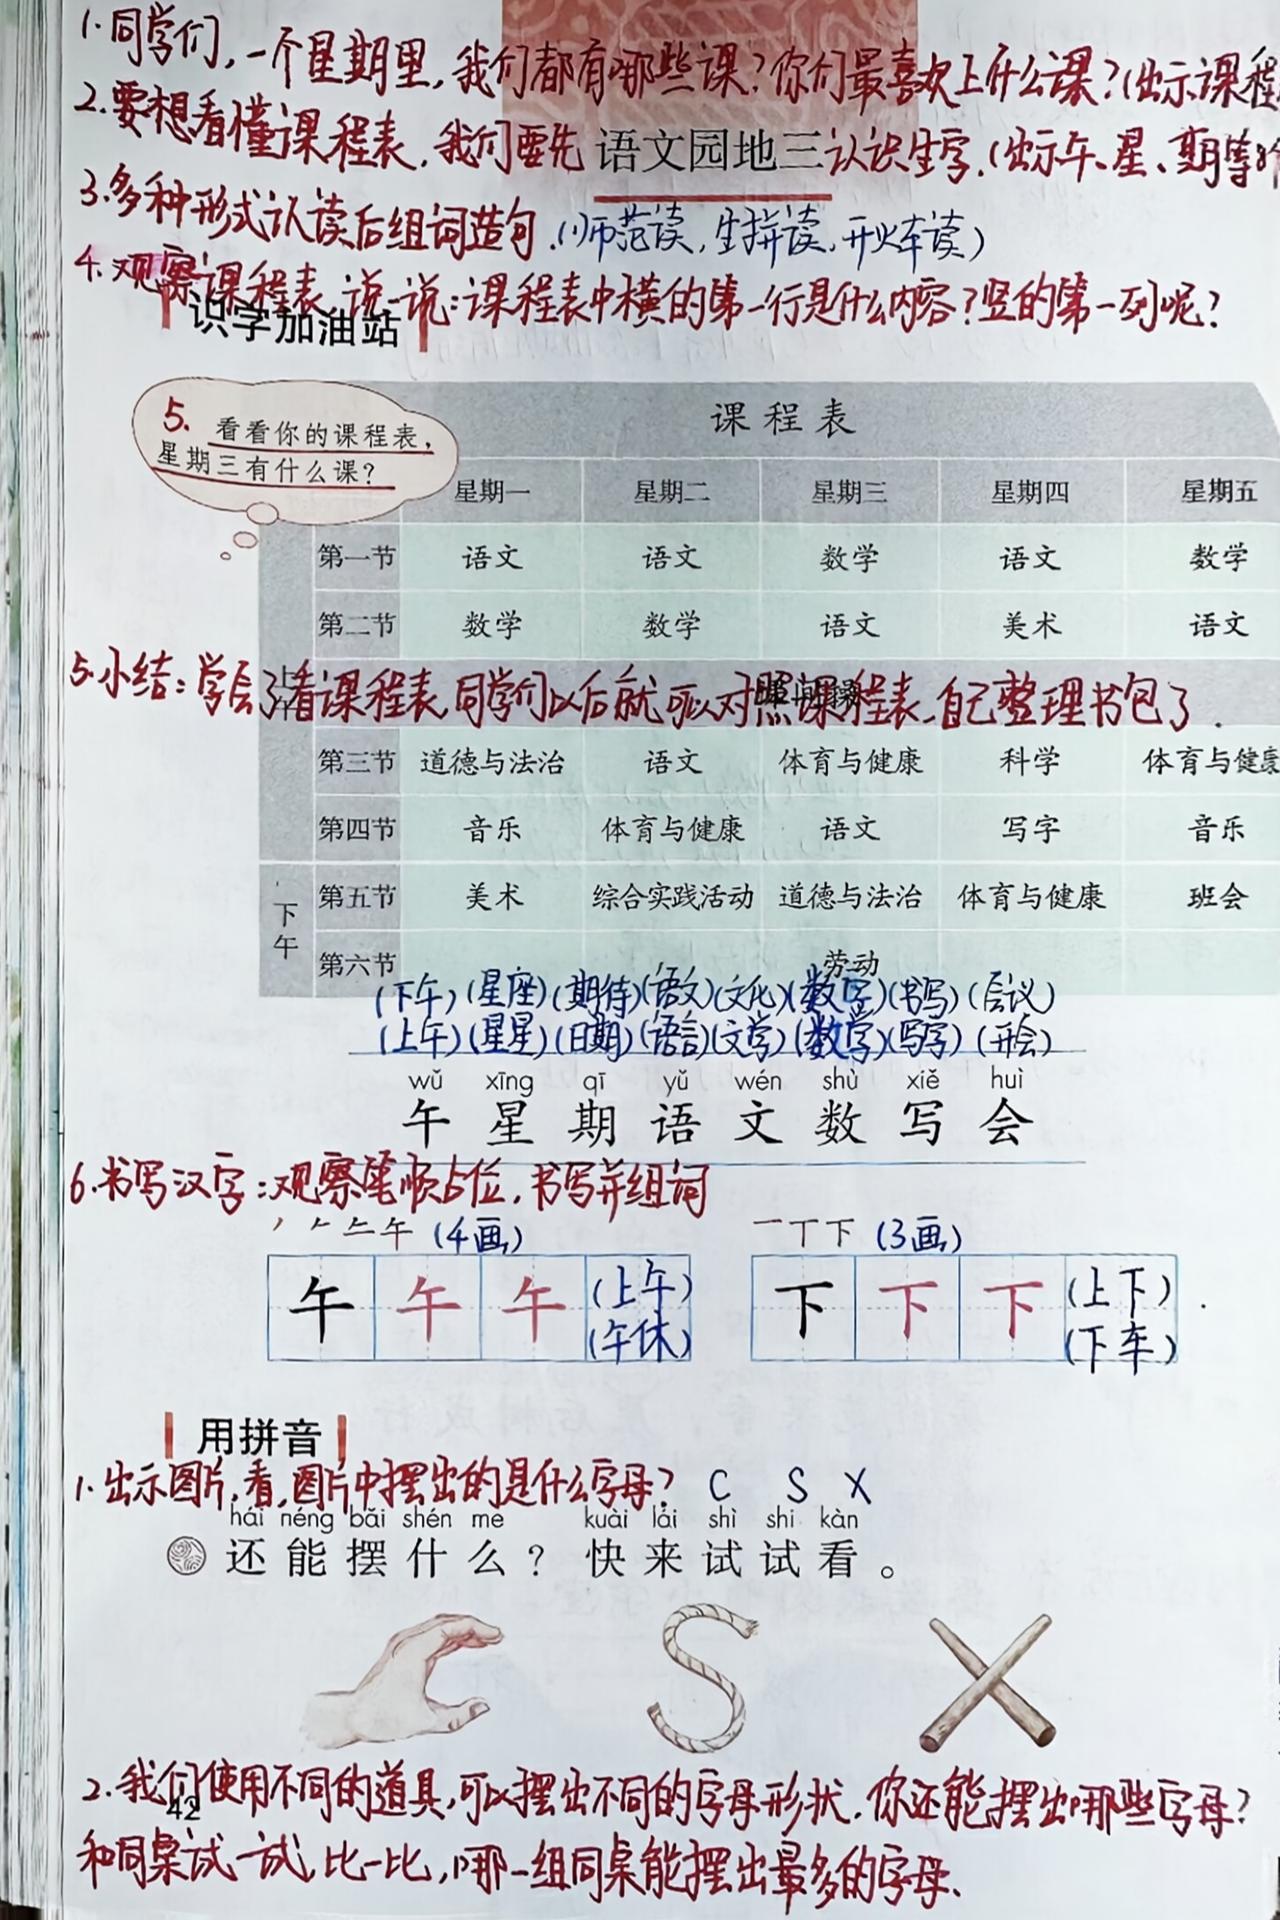 1.同学们,一个星期里,我们都有哪些课?你们最喜欢上什么课?(出示课程
2.要想看懂课程表,我们要先认识生字.(出示午、星、期等8个
语文园地三
3.多种形式认读后组词造句.(师范读,生拼读,开火车读)
4.观察课程表,说一说:课程表中横的第一行是什么内容?竖的第一列呢?
识字加油站
5.看看你的课程表,
星期三有什么课?
课程表
星期一 星期二 星期三 星期四 星期五
上午
第一节 语文 语文 数学 语文 数学
第二节 数学 数学 语文 美术 语文
课间操
5.小结:学会了看课程表,同学们以后就可以对照课程表,自己整理书包了.
第三节 道德与法治 语文 体育与健康 科学 体育与健康
第四节 音乐 体育与健康 语文 写字 音乐
下午
第五节 美术 综合实践活动 道德与法治 体育与健康 班会
第六节 劳动
(下午)(星座)(期待)(语文)(文化)(数字)(书写)(会议)
(上午)(星星)(日期)(语言)(文学)(数学)(写字)(开会)
wǔ xīng qī yǔ wén shù xiě huì
午 星 期 语 文 数 写 会
6.书写汉字:观察笔顺占位,书写并组词
(4画) (3画)
午 午 午 (上午) 下 下 下 (上下)
(午休) (下车)
用拼音
1.出示图片,看,图片中摆出的是什么字母? C S X
hái néng bǎi shén me kuài lái shì shi kàn
还能摆什么?快来试试看。
2.我们使用不同的道具,可以摆出不同的字母形状.你还能摆出哪些字母?
42
和同桌试一试,比一比,哪一组同桌能摆出最多的字母.